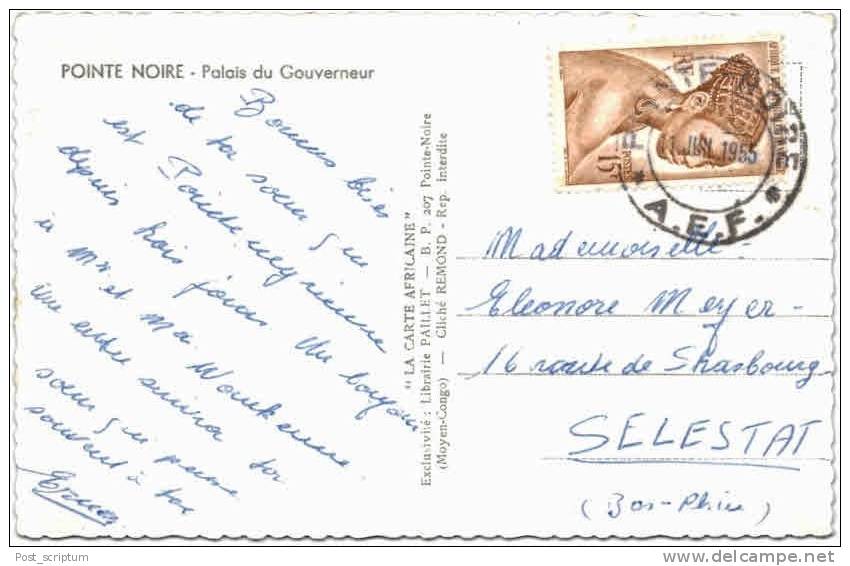 POINTE NOIRE - Palais du Gouverneur
Bonnes bises
de ta soeur qui
est Pointenegrienne
depuis trois jours Un bonjour
à Mr et Ma.
une lettre suivra ta
soeur qui pense
souvent à toi
"LA CARTE AFRICAINE"
Exclusivité : Librairie PAILLET — B. P. 207 Pointe-Noire
(Moyen-Congo) — Cliché REMOND - Rep. Interdite
RF
15F
POSTES
JUN 1955
* A.E.F. *
Mademoiselle
Eleonore Meyer -
16 route de Strasbourg
SELESTAT
(Bas-Rhin)
Post_scriptum
www.delcampe.net